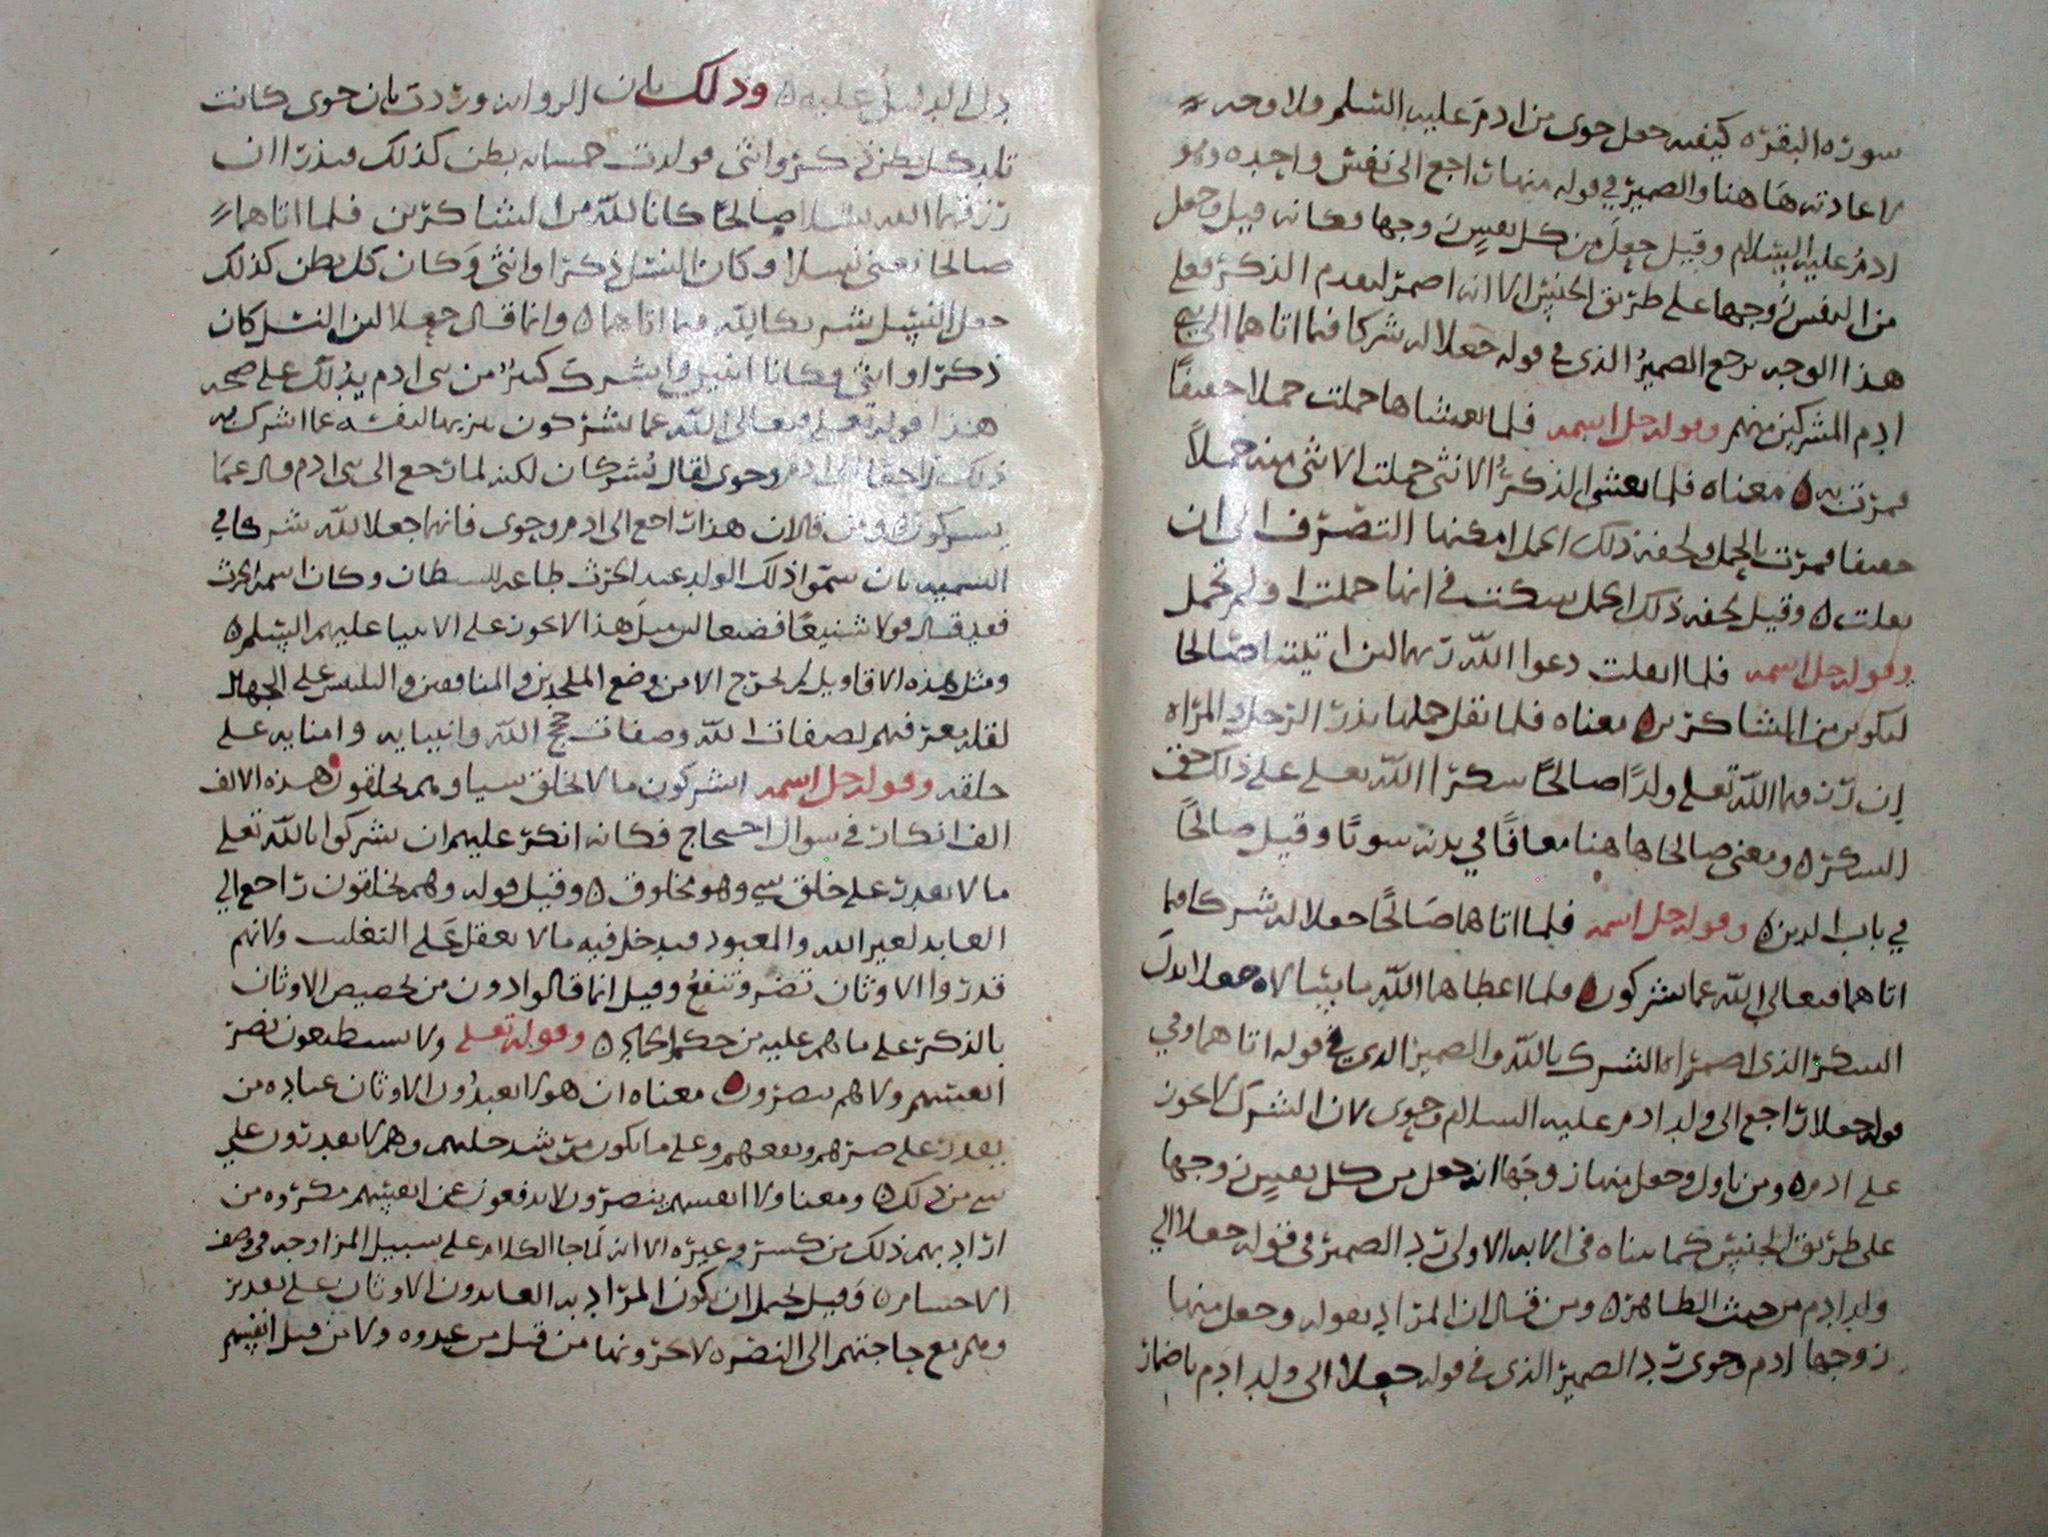 سورة البقرة كيفية جعل حوى من ادم عليه السلم ولا وجه
لاعادته هاهنا والضمير في قوله منها راجع الى نفس واحدة وهو
ادم عليه السلام وقيل جعل من كل نفس زوجها فكانه قيل وجعل
من النفس زوجها على طريق الجنس الا انه اضمر لتقدم الذكر فعلى
هذا الوجه يرجع الضمير الذي في قوله جعلا له شركا فيما اتاهما الى بني
ادم المشركين منهم وقوله جل اسمه فلما تغشاها حملت حملا خفيفًا
فمرت به ه معناه فلما تغشى الذكر الانثى حملت الانثى منه حملاً
خفيفا فمرت بالحمل ولخفة ذلك الحمل امكنها التصرف الى ان
ثقلت ه وقيل لخفة ذلك الحمل شكت في انها حملت او لم تحمل
وقوله جل اسمه فلما اثقلت دعوا الله ربهما لئن اتيتنا صالحا
لنكونن من الشاكرين ه معناه فلما ثقل حملها نذر الرجل والمراه
ان رزقهما الله تعلى ولدًا صالحًا شكرا الله تعلى على ذلك حق
الشكر ه ومعنى صالحا هاهنا معافًا في بدنه سويًا وقيل صالحًا
في باب الدين ه وقوله جل اسمه فلما اتاهما صَالحًا جعلا له شركا فيما
اتاهما فتعالى الله عما يشركون ه فلما اعطاهما الله ما سالاه جعلا بدل
الشكر الذي اضمراه الشرك بالله والضمير الذي في قوله اتاهما وفي
قوله جعلا راجع الى ولد ادم عليه السلام وحوى لان الشرك لا يجوز
على ادم ه ومن تاول وجعل منها زوجها انه جعل من كل نفس زوجها
على طريق الجنس كما بيناه في الايه الاولى رد الضمير في قوله جعلا الى
ولد ادم من حيث الظاهر ه ومن قال ان المراد بقوله وجعل منها
زوجها ادم وحوى رد الضمير الذي في قوله جعلا الى ولد ادم باضمار
دل الدليل عليه ه وذلك بان الروايه وردت بان حوى كانت
تلد كل بطن ذكرا وانثى فولدت خمسمايه بطن كذلك فنذرا ان
رزقهما الله نسلا صالحًا كانا لله من الشاكرين فلما اتاهما
صالحا يعني نسلا وكان النسل ذكرا وانثى وكان كل بطن كذلك
جعل النسل شريكا لله فيما اتاهما ه وانما قال جعلا لان النسل كان
ذكرا وانثى فكانا اثنين واشرك كثير من بني ادم يدُلك على صحه
هذا قوله تعلى فتعالى الله عما يشركون تنزيها لنفسه عما اشرك به
ذلك راجعا الى ادم وحوى لقال يُشركان لكنه لما رجع الى بني ادم قال عمَا
يشركون ه ومن قال ان هذا راجع الى ادم وحوى فانهما جعلا لله شركا في
التسميه بان سمّوا ذلك الولد عبد الحرث طاعه للشيطان وكان اسمه الحرث
فقد قال قولا شنيعًا فضيعا لان مثل هذا لا يجوز على الانبيا عليهم السلم ه
ومثل هذه الاقاويل لم تخرج الا من وضع الملحدين والمنافقين والتلبيس على الجهال
لقله معرفتهم لصفات الله وصفات حجج الله وانبيايه وامنايه على
خلقه وقوله جل اسمه ايشركون ما لا يخلق شيا وهم يخلقون هذه الالف
الف انكار في سوال احتجاج فكانه انكر عليهم ان يشركوا بالله تعلى
ما لا يقدر على خلق شي وهو مخلوق ه وقيل قوله وهم يخلقون راجع الى
العابد لغير الله والمعبود فيدخل فيه ما لا يعقل على التغليب ولانهم
قدروا الاوثان تضر وتنفع وقيل انما قالوا دون من لتخصيص الاوثان
بالذكر على ما هم عليه من حكم الجماد ه وقوله تعلى ولا يستطيعون نصر
انفسهم ولا هم ينصرون ه معناه ان هولا يعبدُون الاوثان عباده من
يقدر على ضرهم ونفعهم وعلى ما يكون من شد حليهم وهم لا يقدرون على
شي من ذلك ه ومعنا ولا انفسهم ينصرون لا يدفعون عن انفسهم مكروه من
اراد بهم ذلك من كسر وغيره الا انه لَما جا الكلام على سبيل المزاوجه في وصف
الاجسام ه وَقيل يحتمل ان يكون المراد به العابدون الاوثان على تقدير
وهم مع حاجتهم الى النصره لا يحرونها من قبل من عبدوه ولا من قبل انفسهم